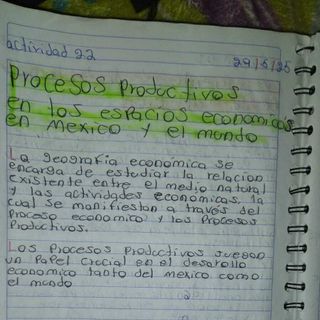 actividad 2.2
29/5/25
Procesos Productivos
en los espacios economicos
en mexico y el mundo
La geografía económica se
encarga de estudiar la relacion
existente entre el medio natural
y las actividades economicas, la
cual se manifiestan a través del
Proceso economico y los Procesos
Productivos.
Los Procesos Productivos juegan
un Papel crucial en el desarollo
economico tanto del mexico como
el mundo